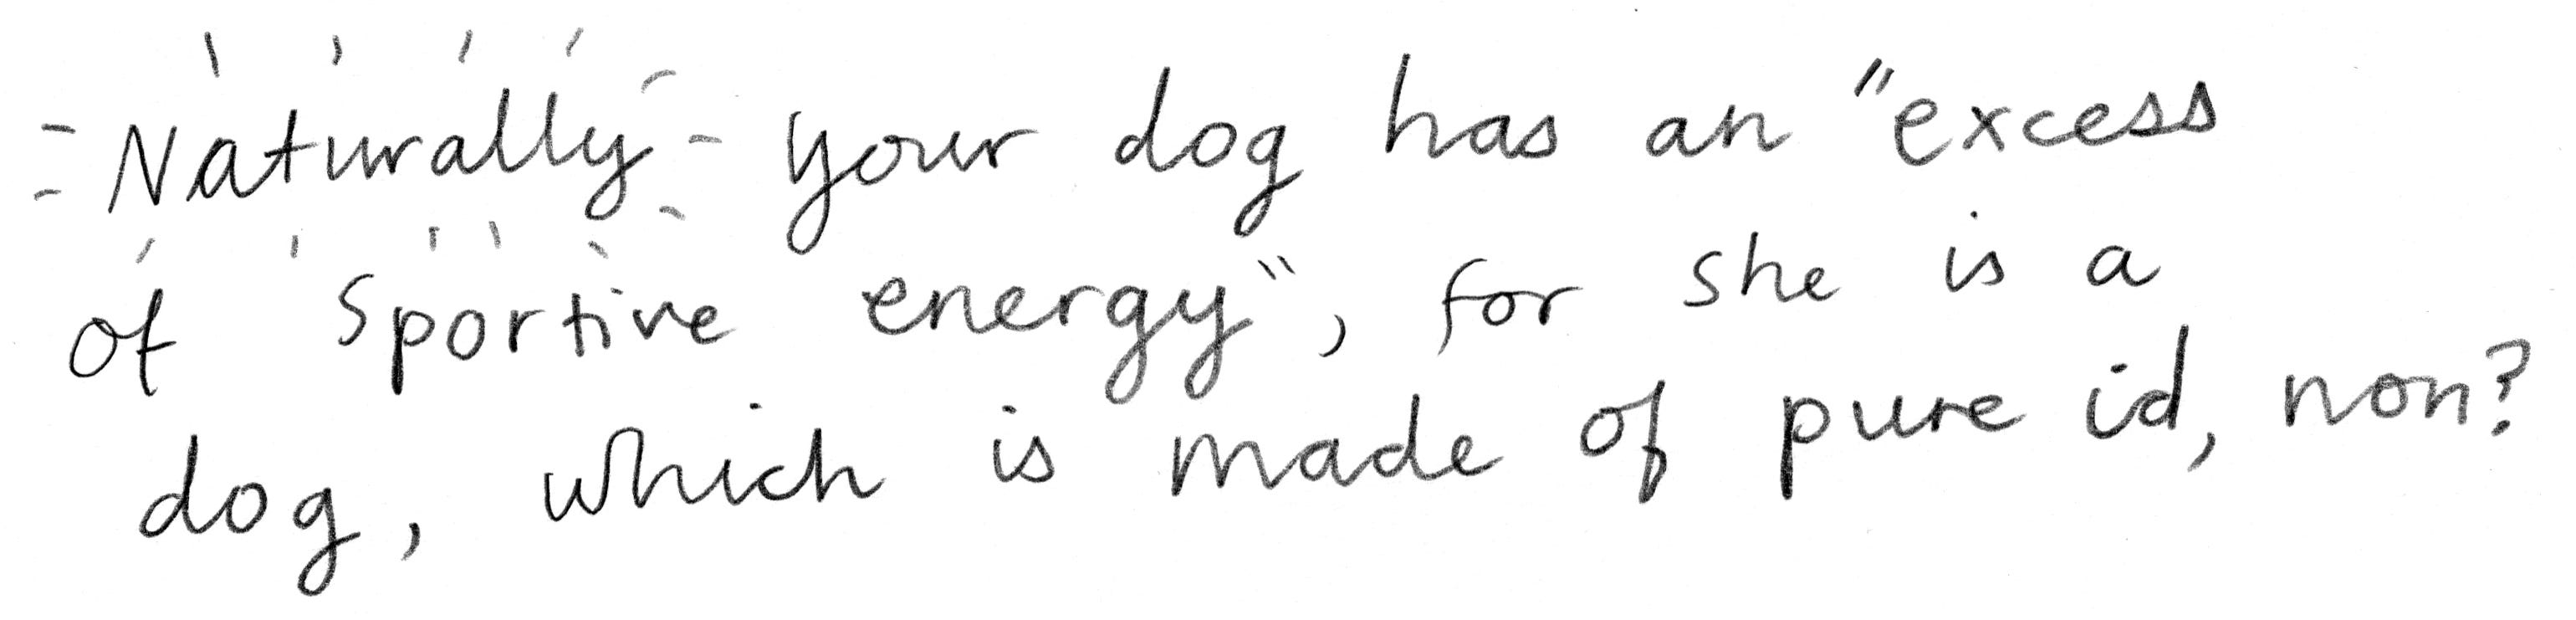 Naturally your dog has an "excess
of sportive energy", for she is a
dog, which is made of pure id, non?